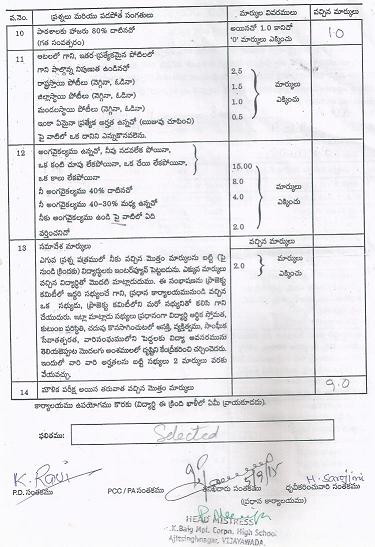 వ.నెం. ప్రశ్నలు మరియు పదపోత సంగతులు మార్కుల వివరములు వచ్చిన మార్కులు
10 పాఠశాలకు హాజరు 80% దాటినచో అయినచో 1.0 కానిచో 10
(గత సంవత్సరం) '0' మార్కులు ఎక్కించు
11 ఆటలలో గాని, ఇతర ప్రత్యేకమైన పోటీలలో
గాని పాల్గొన్న నిపుణుత ఉండినచో
రాష్ట్రస్థాయి పోటీలు (నెగ్గినా, ఓడినా) 2.5
జిల్లాస్థాయి పోటీలు (నెగ్గినా, ఓడినా) 1.5 మార్కులు
మండలస్థాయి పోటీలు (నెగ్గినా, ఓడినా) 1.0 ఎక్కించు
ఇంకా ఏమైనా ప్రత్యేక అర్హత ఉన్నచో (ఋజువు చూపించి) 0.5
పై వాటిలో ఒక దానిని ఎన్నుకొనవలెను.
12 అంగవైకల్యము ఉన్నచో, నీవు నడవలేకపోయినా,
ఒక కంటి చూపు లేకపోయినా, ఒక చేయి లేకపోయినా, 15.00
ఒక కాలు లేకపోయినా 8.0 మార్కులు
నీ అంగవైకల్యము 40% దాటినచో 4.0
నీ అంగవైకల్యము 40-30% మధ్య ఉన్నచో ఎక్కించు
నీకు అంగవైకల్యము ఉండి పై వాటిలో ఏది 2.0
వర్తించనిచో
13 సమావేశ మార్కులు వచ్చిన మార్కులు
ఎగువ ప్రశ్న పత్రములో వచ్చిన మొత్తం మార్కులను బట్టి (పై మార్కులు
నుండి క్రిందకు) విద్యార్థులకు ఇంటర్వ్యూకి పెట్టబడును. ఎక్కువ మార్కులు 2.0 ఎక్కించు
వచ్చిన విద్యార్థితో మొదలి మాట్లాడుదుము. ఈ సంభాషణను ప్రాజెక్టు
కమిటీలో ఇద్దరి సభ్యులచే గాని, ప్రధాన కార్యాలయమునుండి వచ్చిన
ఒక సభ్యుడు, ప్రాజెక్టు కమిటీలోని మరో సభ్యునితో కలిసి గాని
చేయుదురు. ఇట్లా మాట్లాడు సభ్యులు ప్రధానంగా విద్యార్థి ఆర్థిక స్తోమత,
కుటుంబ పరిస్థితి, చదువు కొనసాగించుటలో ఆసక్తి, వ్యక్తిత్వము, సాంఘిక
సేవాతత్పరత, వారినసంఘములోని పెద్దలకు విద్యా అవసరమును
తెలియజెప్పుట మొదలగు అంశములలో దృష్టిని కేంద్రీకరించి చర్చించెదరు.
ఇందులో వారి వారి అర్హతలను బట్టి సభ్యులు 2 మార్కులు వరకు
వేయవచ్చు.
14 మౌఖిక పరీక్ష అయిన తరువాత వచ్చిన మొత్తం మార్కులు 9.0
కార్యాలయము ఉపయోగము కొరకు (విద్యార్థి ఈ క్రింది ఖాళీలో ఏమీ వ్రాయకూడదు).
ఫలితము: Selected
K. Ravi 5/9/15 H. Sarojini
P.D. సంతకము PCC / PA సంతకము సంతకము ధృవీకరించువారి సంతకము
(ప్రధాన కార్యాలయము)
HEAD MISTRESS
K.Baig Mpl. Corpn. High School
Ajitsinghnagar, VIJAYAWADA.